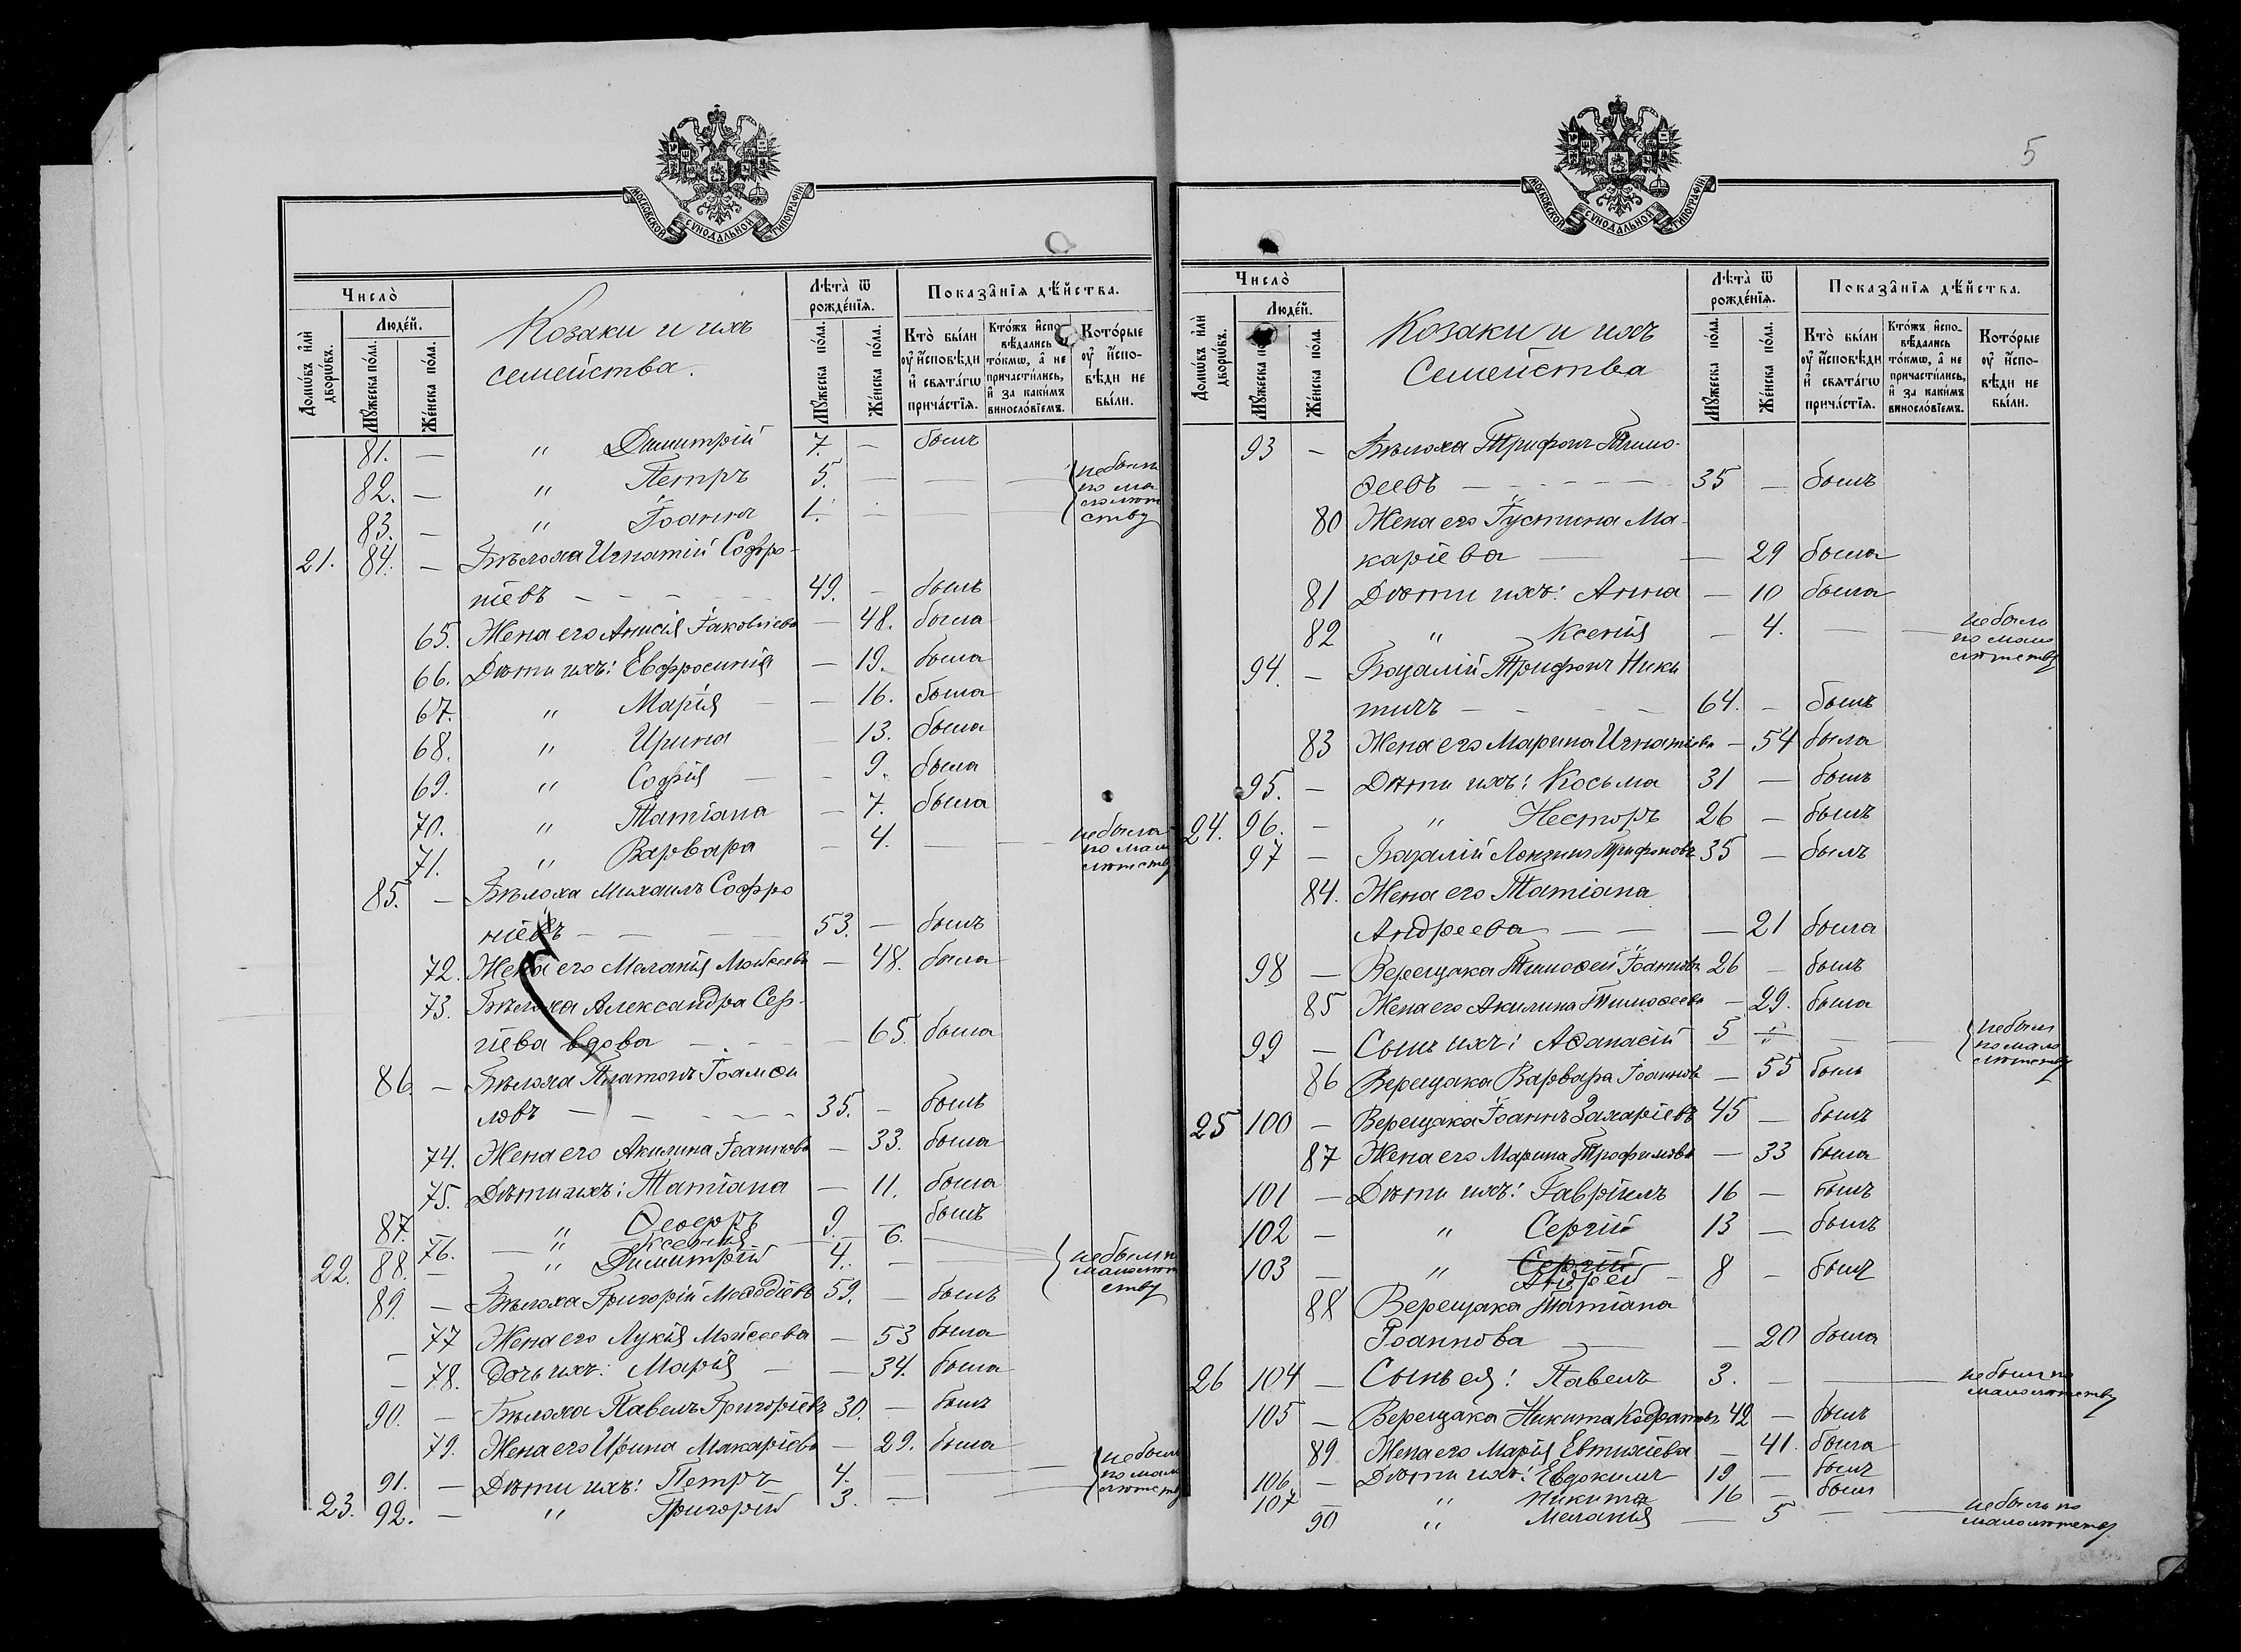 МОСКОВСКОЙ СѴНОДАЛЬНОЙ ТИПОГРАФІИ
Число̀
Домѡ́въ и҆лѝ дворѡ́въ.
Люде́й.
Мꙋ́жеска по́ла.
Же́нска по́ла.
Козаки и ихъ
семейства.
Лѣта̀ ѿ рожде́нїѧ.
Мꙋ́жеска по́ла.
Же́нска по́ла.
Показа̂нїѧ дѣ́йства.
Кто̀ бы́ли оу҆ и҆сповѣ́ди и҆ свѧта́гѡ прича́стїѧ.
Кто́жъ и҆спо-вѣ́дались то́кмѡ, а҆ не причасти́лись, и҆ за каки́мъ винослó​вїемъ.
Кото́рые оу҆ и҆спо-вѣ́ди не бы́ли.
81. — " Димитрій 7. — былъ
82. — " Петръ 5. — — — не были
по ма
83. — " Іоаннъ 1. — — — ству
21. 84. — Бѣлоха Игнатій Софро-
ніевъ 49. — былъ
65. Жена его Анисія Іаковлева — 48. была
66. Дѣти ихъ: Евфросинія — 19. была
67. " Марія — 16. была
68. " Ирина — 13. была
69. " Софія — 9. была
70. " Татіана — 7. была
71. " Варвара — 4. — — не была
по мало
лѣтству
85. — Бѣлоха Михаилъ Софро
ніевъ 53. — былъ
72. Жена его Меланія Моѵсеева — 48. была
73. Бѣлоха Александра Сер-
гіева вдова — 65. была
86. — Бѣлоха Платонъ
35. — былъ
74. Жена его Акилина Іоаннова — 33. была
75. Дѣти ихъ: Татіана — 11. была
87. — " Ѳеодоръ 9. — былъ
76. — " Ксенія 6.
22. 88. — " Димитрій 4. — — не были по
малолѣт
ству
89. — Бѣлоха Григорій Меѳодіевъ 59. — былъ
77 Жена его Лукія Моѵсеева — 53 была
78. Дочь ихъ: Марія — 34. была
90. — Бѣлоха Павелъ Григоріевъ 30. — былъ
79. Жена его Ирина Макаріева — 29. была
91. — Дѣти ихъ: Петръ 4. — — не были
по мало
лѣтству
23. 92. — " Григорій 3. —
5
МОСКОВСКОЙ СѴНОДАЛЬНОЙ ТИПОГРАФІИ
Число̀
Домѡ́въ и҆лѝ дворѡ́въ.
Люде́й.
Мꙋ́жеска по́ла.
Же́нска по́ла.
Козаки и ихъ
Семейства
Лѣта̀ ѿ рожде́нїѧ.
Мꙋ́жеска по́ла.
Же́нска по́ла.
Показа̂нїѧ дѣ́йства.
Кто̀ бы́ли оу҆ и҆сповѣ́ди и҆ свѧта́гѡ прича́стїѧ.
Кто́жъ и҆спо-вѣ́дались то́кмѡ, а҆ не причасти́лись, и҆ за каки́мъ винослó​вїемъ.
Кото́рые оу҆ и҆спо-вѣ́ди не бы́ли.
93 — Бѣлоха Трифонъ Тимо-
ѳеевъ 35 — былъ
80 Жена его Іустина Ма-
каріева — 29 была
81 Дѣти ихъ: Анна — 10 была
82 " Ксенія — 4. — — не была
по мало
лѣтству
94. — Базалій Трифонъ Ники
тинъ 64. — былъ
83 Жена его Марина Игнатіева — 54 была
95. — Дѣти ихъ: Косьма 31 — былъ
24. 96. — " Несторъ 26 — былъ
97 — Базалій Логгинъ Трифоновъ 35 — былъ
84. Жена его Татіана
Андреева — 21 была
98 — Верещака Тимоѳей Іоанновъ 26 — былъ
85 Жена его Акилина Тимоѳеева — 29. была
99 — Сынъ ихъ: Аѳанасій 5 — — не былъ
по мало
лѣтству
86 Верещака Варвара Іоаннова — 55 была
25 100 — Верещака Іоаннъ Захаріевъ 45 — былъ
87 Жена его Марина Трофимова — 33 была
101 — Дѣти ихъ: Гавріилъ 16 — былъ
102 — " Сергій 13 — былъ
103 — " Сергій
Андрей 8 — былъ
88 Верещака Татіана
Іоаннова — 20 была
26 104 — Сынъ ея: Павелъ 3. — — не былъ по
малолѣтству
105 — Верещака Никита Кодратовъ 42 — былъ
89 Жена его Марія Евтихіева — 41. была
106. — Дѣти ихъ: Евдокимъ 19 — былъ
107 — " Никита 16 — былъ
90 " Меланія — 5 — — не была по
малолѣтству